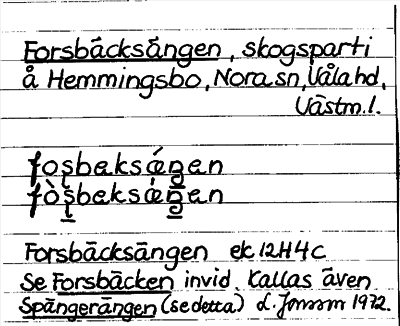 Forsbäcksängen, skogsparti
å Hemmingsbo, Nora sn, Våla hd,
Västm. l.
foşbeksáŋen
fòşbeksáŋen
Forsbäcksängen ek 12H4c
Se Forsbäcken invid. Kallas även
Spängerängen (se detta) L. Jonsson 1972.